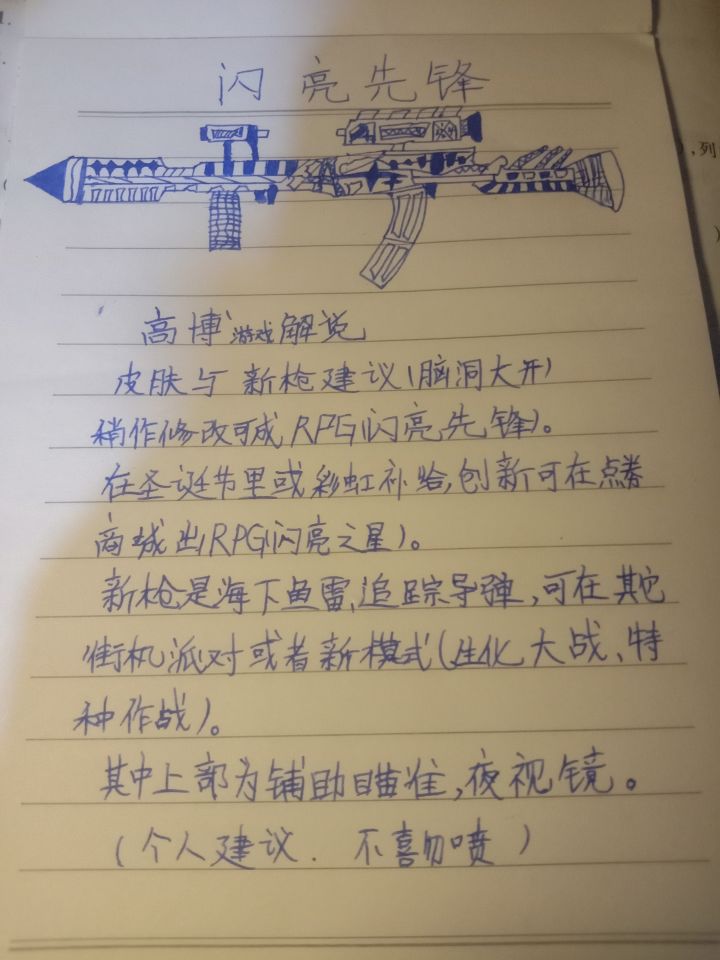 闪亮先锋
高博游戏解说
皮肤与新枪建议(脑洞大开)
稍作修改可成RPG(闪亮先锋)。
在圣诞节里或彩虹补给,创新可在点券
商城出(RPG闪亮之星)。
新枪是海下鱼雷,追踪导弹,可在其它
街机派对或者新模式(生化大战、特
种作战)。
其中上部为铺助瞄准,夜视镜。
(个人建议.不喜勿喷)
列